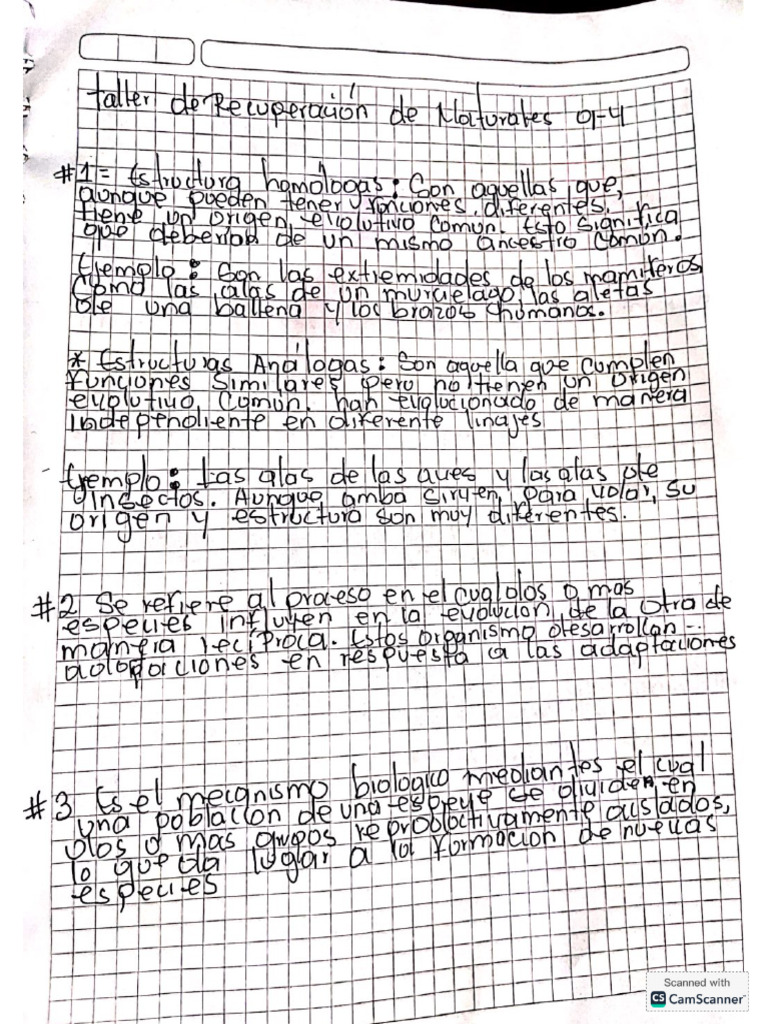 taller de Recuperación de Naturales 9-4
#1= Estructura homólogas: Son aquellas que,
aunque pueden tener funciones diferentes,
tiene un origen evolutivo común. Esto significa
que deberiad de un mismo ancestro común.
Ejemplo: Son las extremidades de los mamiferos
Como las alas de un murcielago, las aletas
de una ballena y los brazos humanos.
* Estructuras Análogas: Son aquella que cumplen
funciones similares pero no tienen un origen
evolutivo común. han evolucionado de manera
independiente en diferente linajes
Ejemplo: Las alas de las aves y las alas de
insectos. Aunque amba sirven para volar, su
origen y estructura son muy diferentes.
#2 Se refiere al proceso en el cual dos o mas
especies influyen en la evolucion de la otra de
maneia reciproca. Estos organismo desarrollan
adaptaciones en respuesta a las adaptaciones
#3 Es el mecanismo biologico mediantes el cual
una poblacion de una especie se dividen en
dos o mas grupos reproductivamente aislados,
lo que da lugar a la formacion de nuevas
especies
Scanned with
CS CamScanner